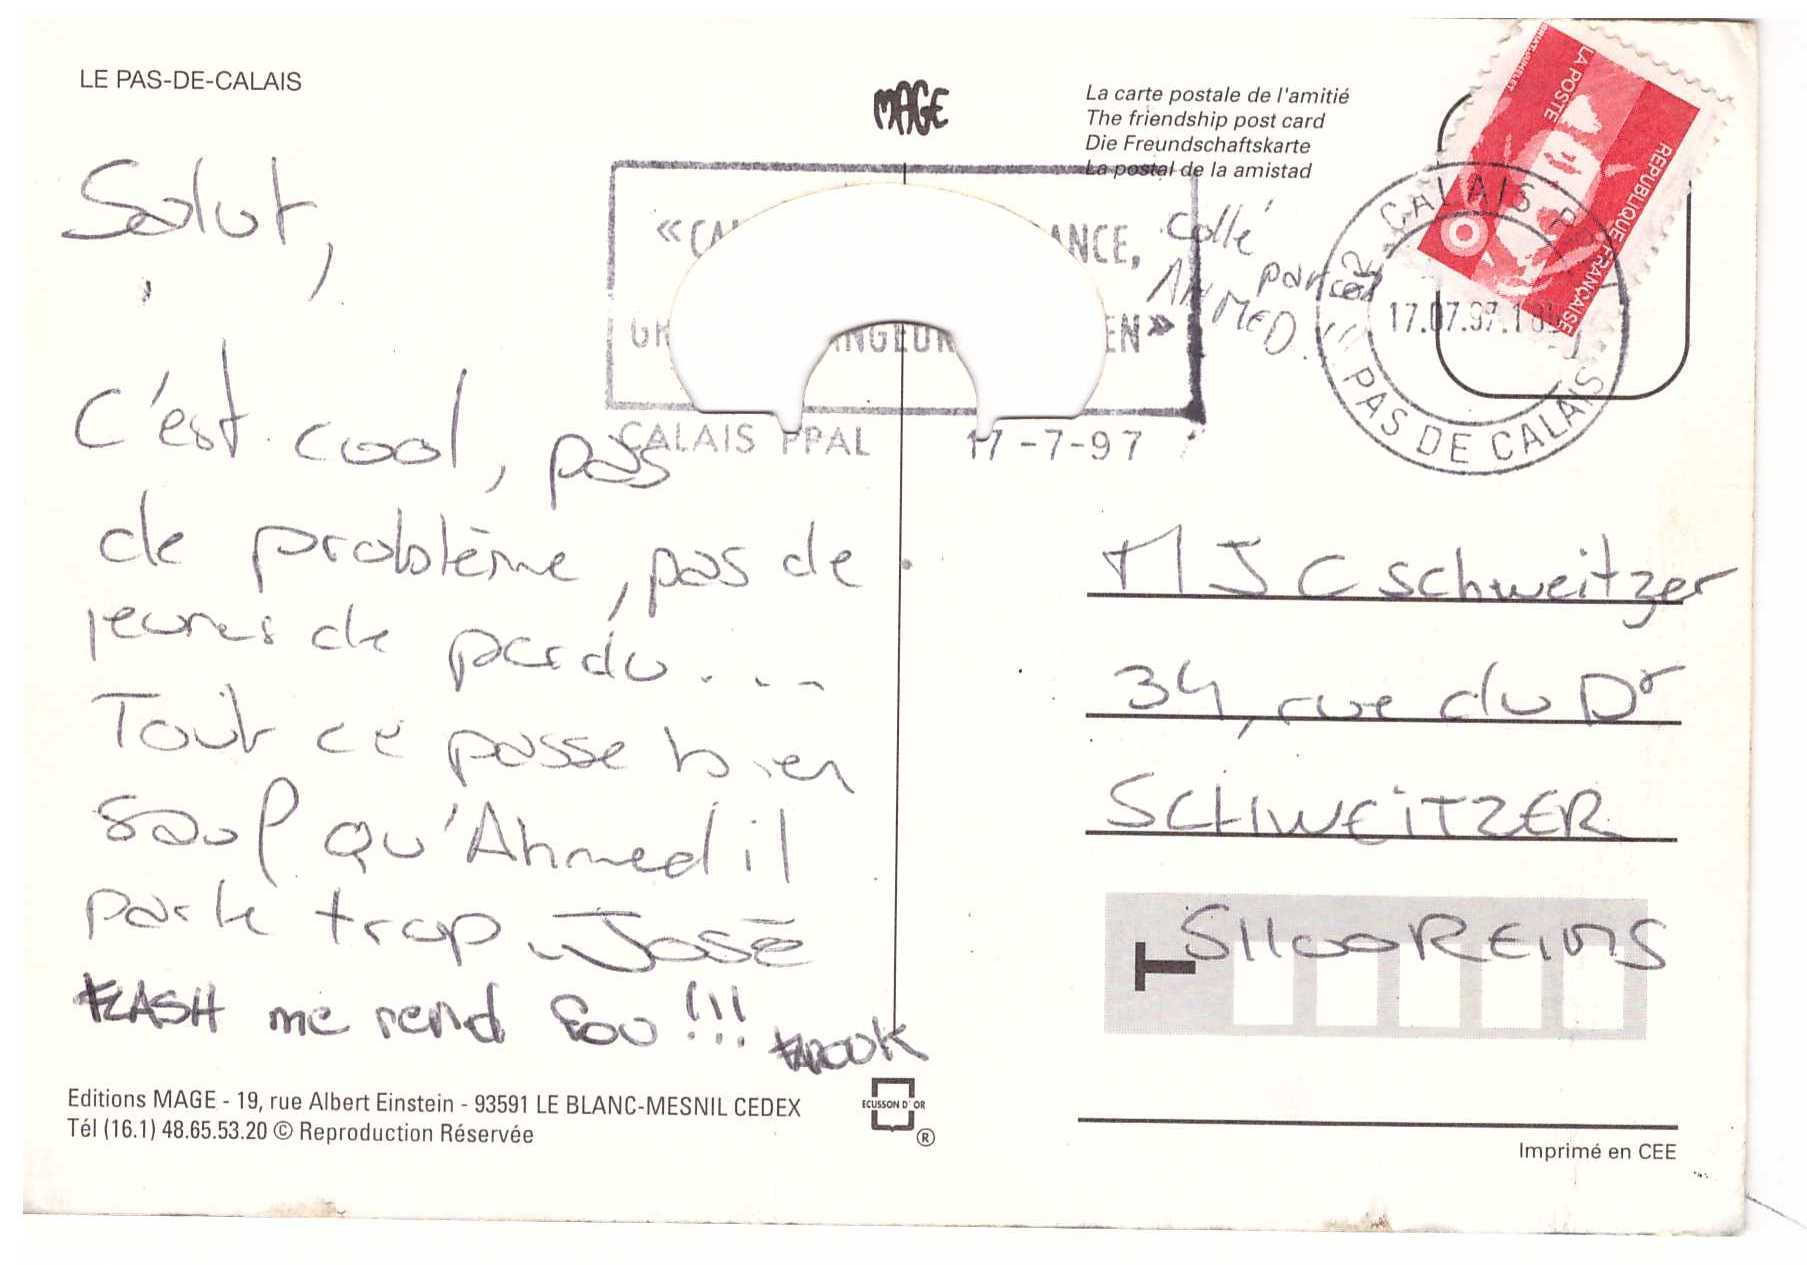 LE PAS-DE-CALAIS
MAGE
La carte postale de l'amitié
The friendship post card
Die Freundschaftskarte
La postal de la amistad
Salut,
C'est cool, pas
de problème, pas de
jeunes de perdu...
Tout ce passe bien
sauf qu'Ahmed il
parle trop José
FLASH me rend fou !!!
FAROUK
Editions MAGE - 19, rue Albert Einstein - 93591 LE BLANC-MESNIL CEDEX
Tél (16.1) 48.65.53.20 © Reproduction Réservée
ECUSSON D'OR
®
ANCE,
EN»
CALAIS PPAL 17-7-97
collé
par
AHMED
LA POSTE
REPUBLIQUE FRANÇAISE
62 CALAIS
17.07.97
PAS DE CALAIS
MJC Schweitzer
34, rue du Dr
SCHWEITZER
T 51100 REIMS
Imprimé en CEE